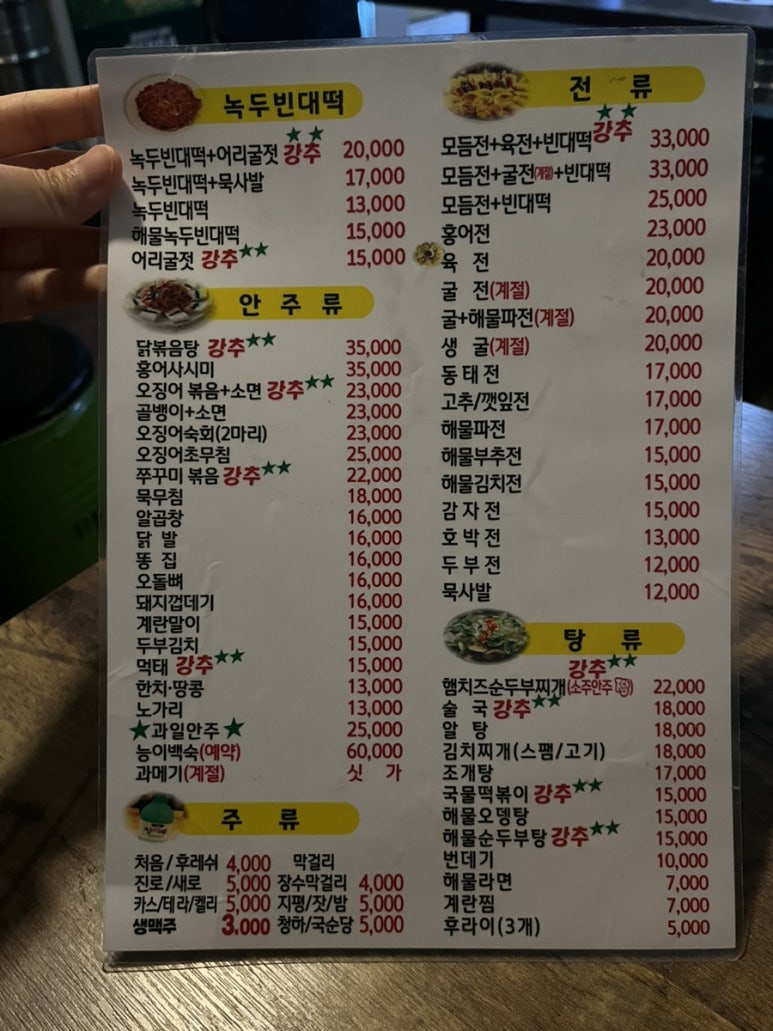 녹두빈대떡
녹두빈대떡+어리굴젓 강추★★ 20,000
녹두빈대떡+묵사발 17,000
녹두빈대떡 13,000
해물녹두빈대떡 15,000
어리굴젓 강추★★ 15,000
안주류
닭볶음탕 강추★★ 35,000
홍어사시미 35,000
오징어 볶음+소면 강추★★ 23,000
골뱅이+소면 23,000
오징어숙회(2마리) 23,000
오징어초무침 25,000
쭈꾸미 볶음 강추★★ 22,000
묵무침 18,000
알곱창 16,000
닭 발 16,000
똥 집 16,000
오돌뼈 16,000
돼지껍데기 16,000
계란말이 15,000
두부김치 15,000
먹태 강추★★ 15,000
한치·땅콩 13,000
노가리 13,000
★과일안주★ 25,000
능이백숙(예약) 60,000
과메기(계절) 싯 가
주류
처음/후레쉬 4,000 막걸리
진로/새로 5,000 장수막걸리 4,000
카스/테라/켈리 5,000 지평/잣/밤 5,000
생맥주 3.000 청하/국순당 5,000
전류
모듬전+육전+빈대떡 강추★★ 33,000
모듬전+굴전(계절)+빈대떡 33,000
모듬전+빈대떡 25,000
홍어전 23,000
육 전 20,000
굴 전(계절) 20,000
굴+해물파전(계절) 20,000
생 굴(계절) 20,000
동태전 17,000
고추/깻잎전 17,000
해물파전 17,000
해물부추전 15,000
해물김치전 15,000
감자전 15,000
호박전 13,000
두부전 12,000
묵사발 12,000
탕류
강추★★
햄치즈순두부찌개(소주안주) 22,000
술 국 강추★★ 18,000
알 탕 18,000
김치찌개(스팸/고기) 18,000
조개탕 17,000
국물떡볶이 강추★★ 15,000
해물오뎅탕 15,000
해물순두부탕 강추★★ 15,000
번데기 10,000
해물라면 7,000
계란찜 7,000
후라이(3개) 5,000